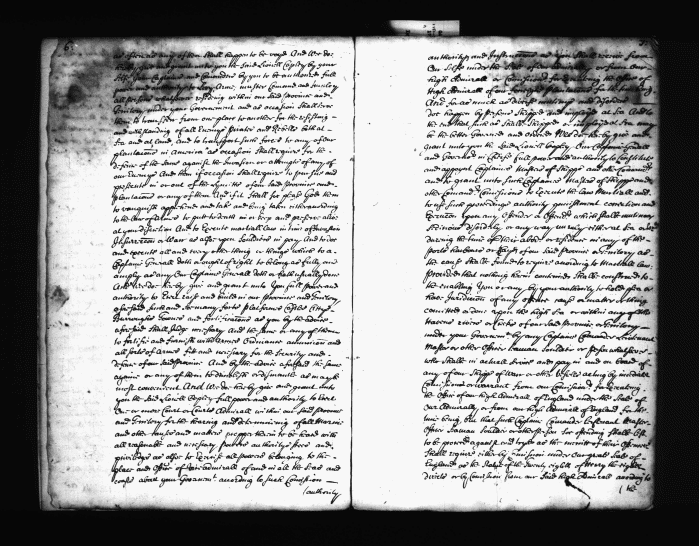 as often as any of them shall happen to be voyd And We do
hereby give and grant unto you the said Lionell Copley by your
self your Captains and Comanders by you to be authorized full
power and authority to Levy Arme, muster Comand and Imploy
all persons whatsoever residing within our said Province and
Territory under your Government and as occasion shall serve
them to transferr from one place to another for the resisting
and withstanding of all Enemys Pirates and Rebells both at
Sea and at Land, And to transport such forces to any of our
plantations in America as occasion shall require for the
defence of the same against the Invasion or attempts of any of
our Enemys And them if occasion shall require to pursue and
prosecute in or out of the Limitts of our said Province and
plantations or any of them And if it shall so please God them
to vanquish apprehend and take and being taken either according
to the Law of armes to put to death or to keep and preserve alive
at your discretion And to Execute martiall law in time of Invasion
Insurrection or Warr as also upon Souldiers in pay, And to do
and execute all and every other thing or things which to a
Captain Generall doth or ought of right to belong as fully and
amply as any Our Captains Generall doth or hath usually done
And We do hereby give and grant unto You full power and
authority to Erect raise and build in our Province and Territory
aforesaid such and so many forts Platforms Castles Citys
Burroughs Townes and fortifications as you by the advice
aforesaid shall judge necessary And the same or any of them
to fortifie and furnish with Armes Ordinance ammunition and
all sorts of armes fitt and necessary for the security and
defence of our said Province And by the advice aforesaid the same
againe or any of them to demolish or dismantle as may be
most convenient And We do hereby give and grant unto
you the said Lionell Copley full power and authority to Erect
One or more Court or Courts Admirall within our said Province
and Territory for the hearing and determining of all Marine
and other causes and matters proper therein to be heard with
all reasonable and necessary powers authoritys fees and
priviledges as also to Exercise all powers belonging to the
place and Office of Vice Admirall of and in all the Seas and
coasts about your Governmt. according to such Comission
(authority
authoritys and Instructions as you shall receive from
Our Selfe under the Seale of our Admiralty or from Our
high Admirall or Comissioners for executing the Office of
High Admirall of our forreigne plantations for the time being
And forasmuch as divers mutinys and disorders
doe happen by persons Shipped and imployed at Sea And to
the end that such as shall be Shipped or imployed at Sea may
be the better Governed and ordered Wee doe hereby give and
grant unto you the said Lionell Copley, Our Captaine Generall
and Governor in Cheife full power and authority to constitute
and appoint Captains Masters of Shipps and other Comanders
and to grant unto such Captains Masters of Shipps and
other Comanders Comissions to Execute the Law Martiall and
to use such proceedings authority punishment correction and
Execution upon any Offender or Offenders which shall be mutinous
seditious disorderly or any way unruly either at Sea or
during the time of their abode or residence in any of the
ports harbours or Bays of our said Province or Territory as
the cause shall be found to require according to Martiall law
Provided that nothing herein conteined shall be construed to
the enabling You or any by your authority to hold plea or
have Jurisdiction of any offence cause or matter or thing
comitted or done upon the high Sea or within any of the
Havens rivers or Creeks of our said Province or Territory
under your Government by any Captaine Comander Lieutenant
Master or other Officer Seaman souldier or person whatsoever
who shall be in actuall service and pay in and on board of
any of our Shipps of War or other Vessells acting by imediate
Comission or warrant from our Comissioners for Executing
the Office of our high Admirall of England under the Seale of
Our Admiralty or from our high Admirall of England for the
time being. But that such Captain Comander Lieutenant Master
Officer Seaman Souldier or other person so offending shall be left
to be proceeded against and tryed as the meritt of their Offences
shall require either by Comission under Our great Seale of
England as the Statute of the twenty eighth of Henry the eighth
directs or by Comission from our said high Admirall according to
(the